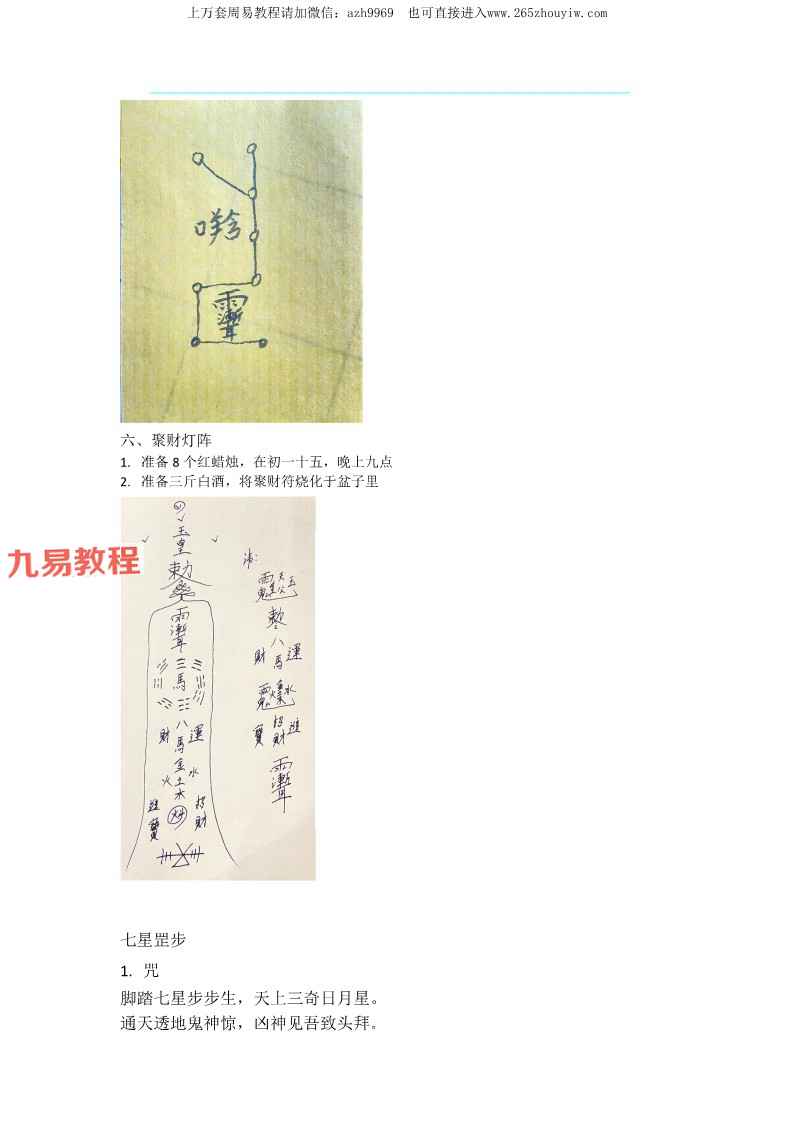 上万套周易教程请加微信：azh9969 也可直接进入www.265zhouyiw.com
六、聚财灯阵
1. 准备 8 个红蜡烛，在初一十五，晚上九点
2. 准备三斤白酒，将聚财符烧化于盆子里
九易教程
玉皇
敕
馬
財 八馬 運
金
火 土 水
水
招財
進寶
八
財 馬 運
招財
進寶
七星罡步
1. 咒
脚踏七星步步生，天上三奇日月星。
通天透地鬼神惊，凶神见吾致头拜。